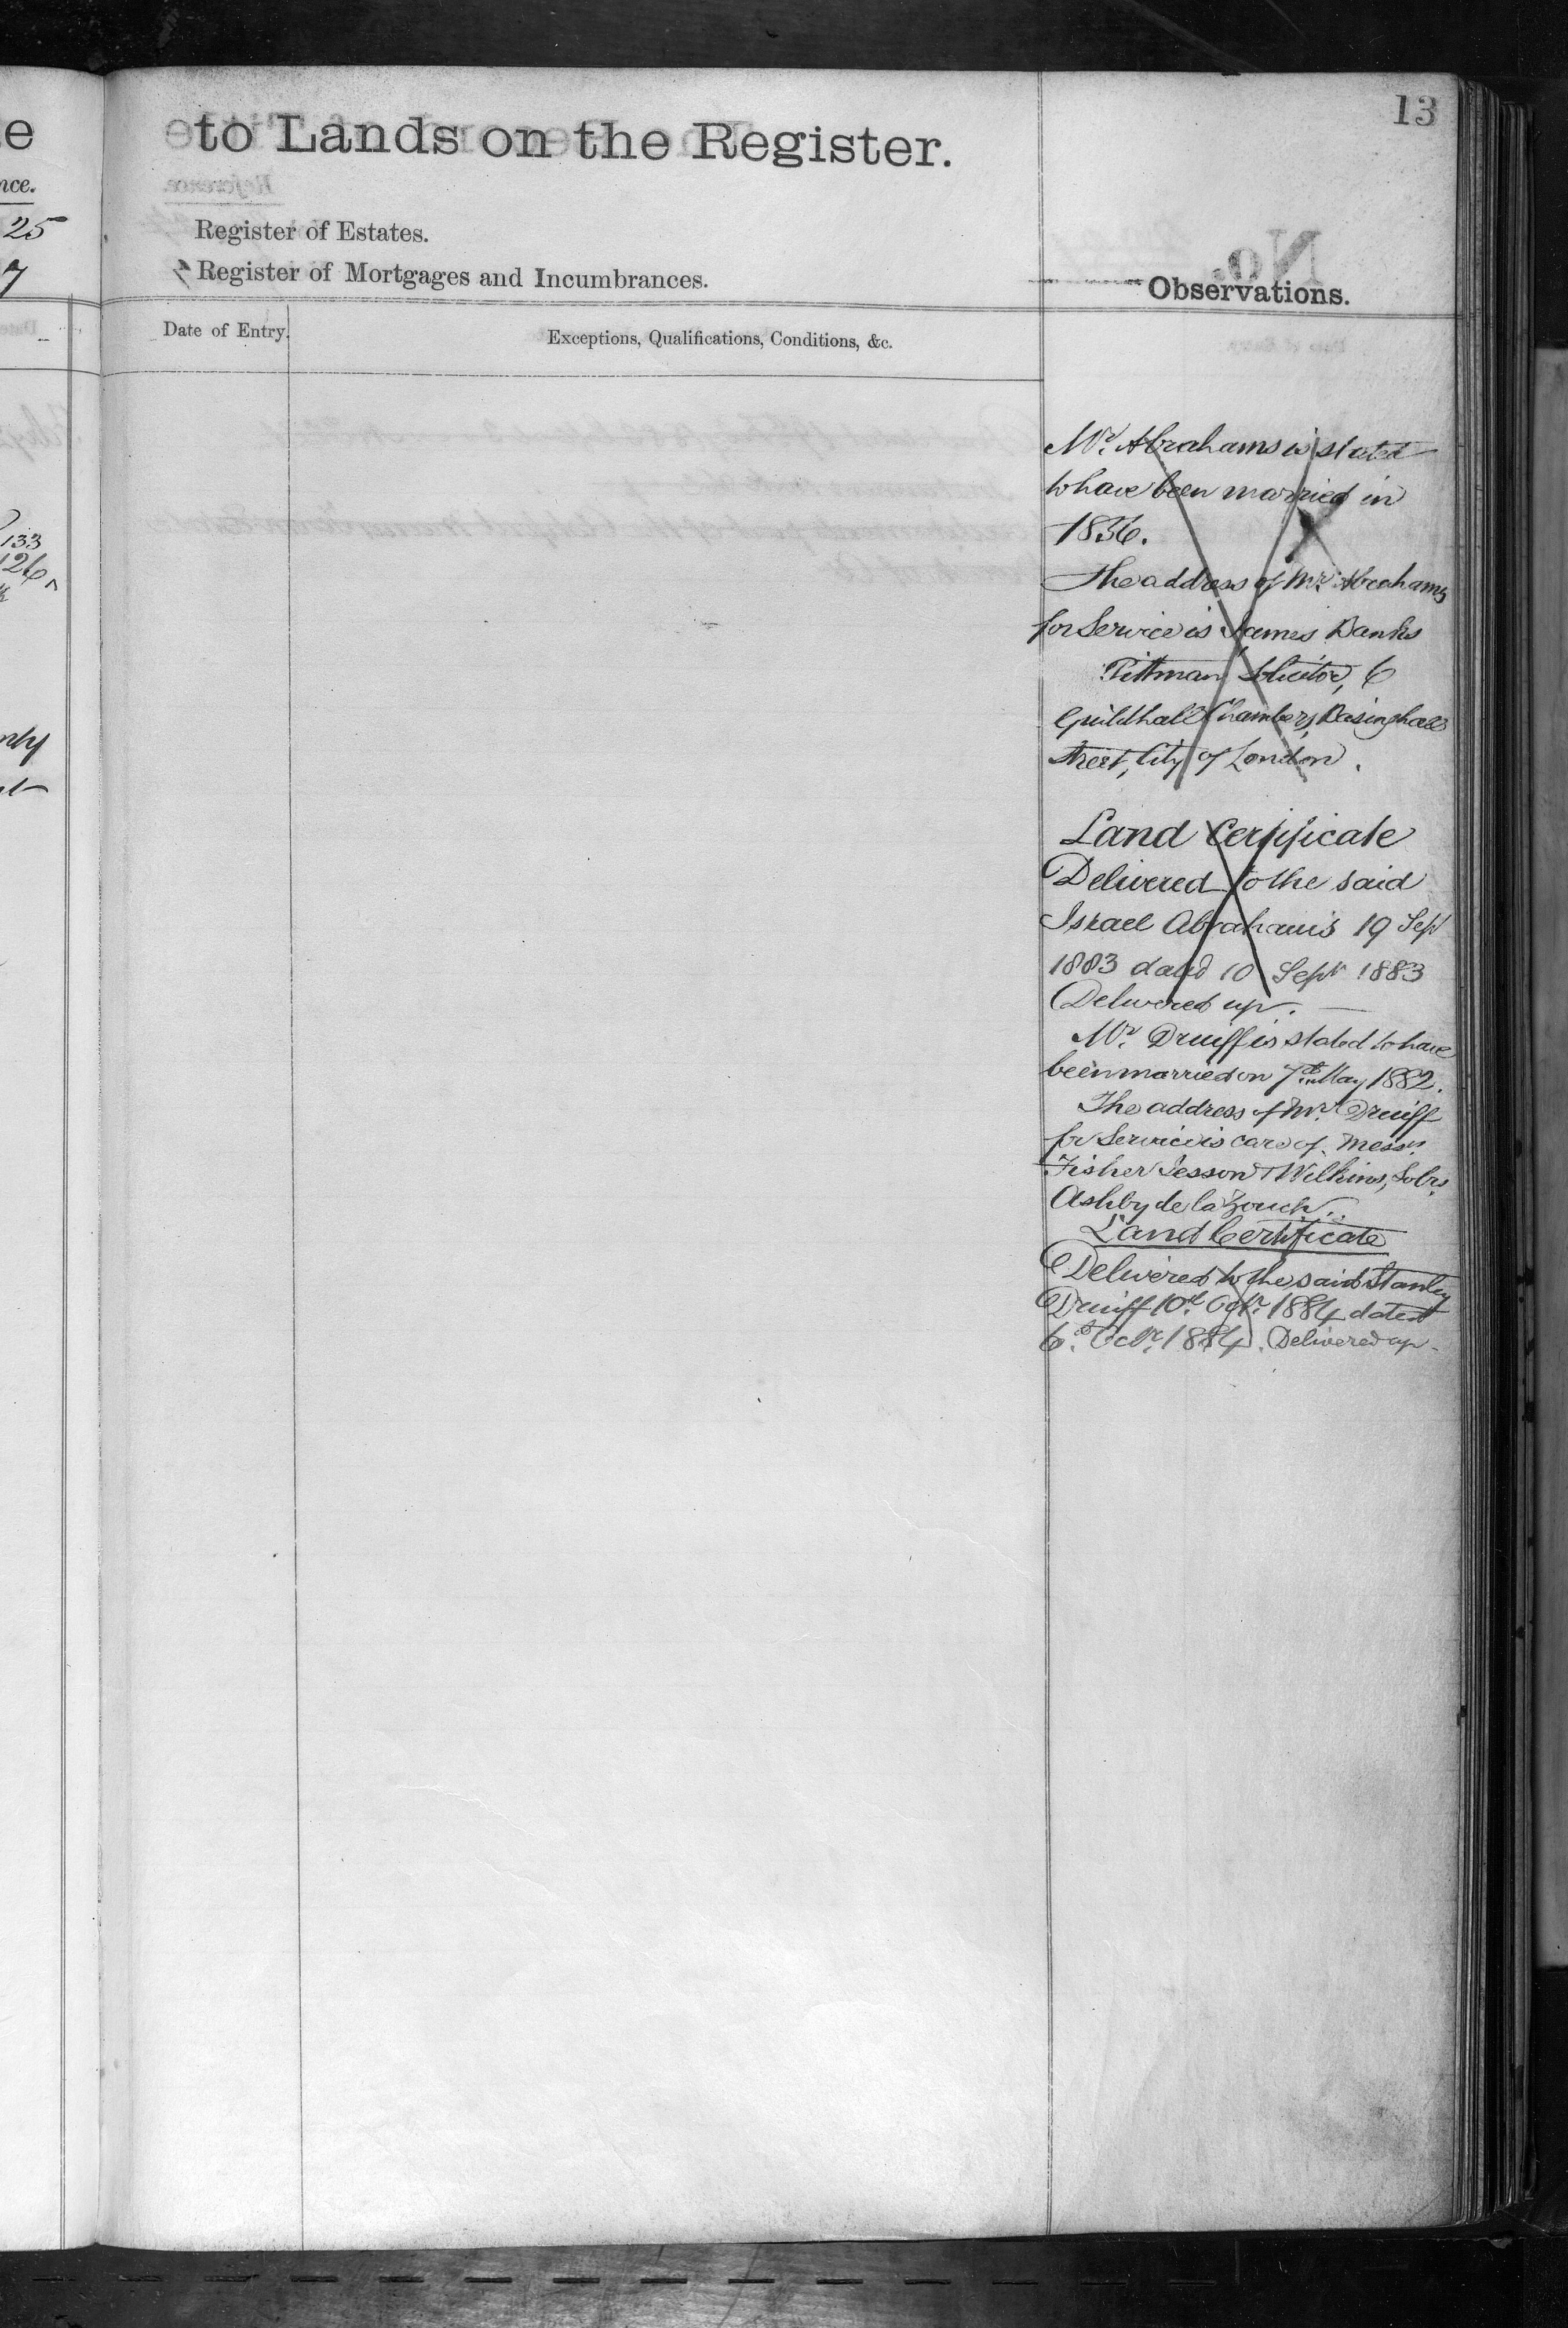 e
nce.
25
7
133
126
nly
13
to Lands on the Register.
Register of Estates.
Register of Mortgages and Incumbrances.
Observations.
Date of Entry.
Exceptions, Qualifications, Conditions, &c.
Mr. Abrahams is stated
to have been married in
1836.
The address of Mr. Abrahams
for Service is James Banks
Pittman, Solicitor, 6
Guildhall Chambers, Basinghall
Street, City of London.
Land Certificate
Delivered to the said
Israel Abrahams 19 Sept
1883 dated 10 Sept 1883
Delivered up.
Mr. Druiff is stated to have
been married on 7th May 1882.
The address of Mr. Druiff
for Service is care of Messrs.
Fisher Jesson & Wilkins, Solrs.
Ashby de la Zouch.
Land Certificate
Delivered to the said Stanley
Druiff 10th Octr. 1884 dated
6th Octr. 1884. Delivered up.